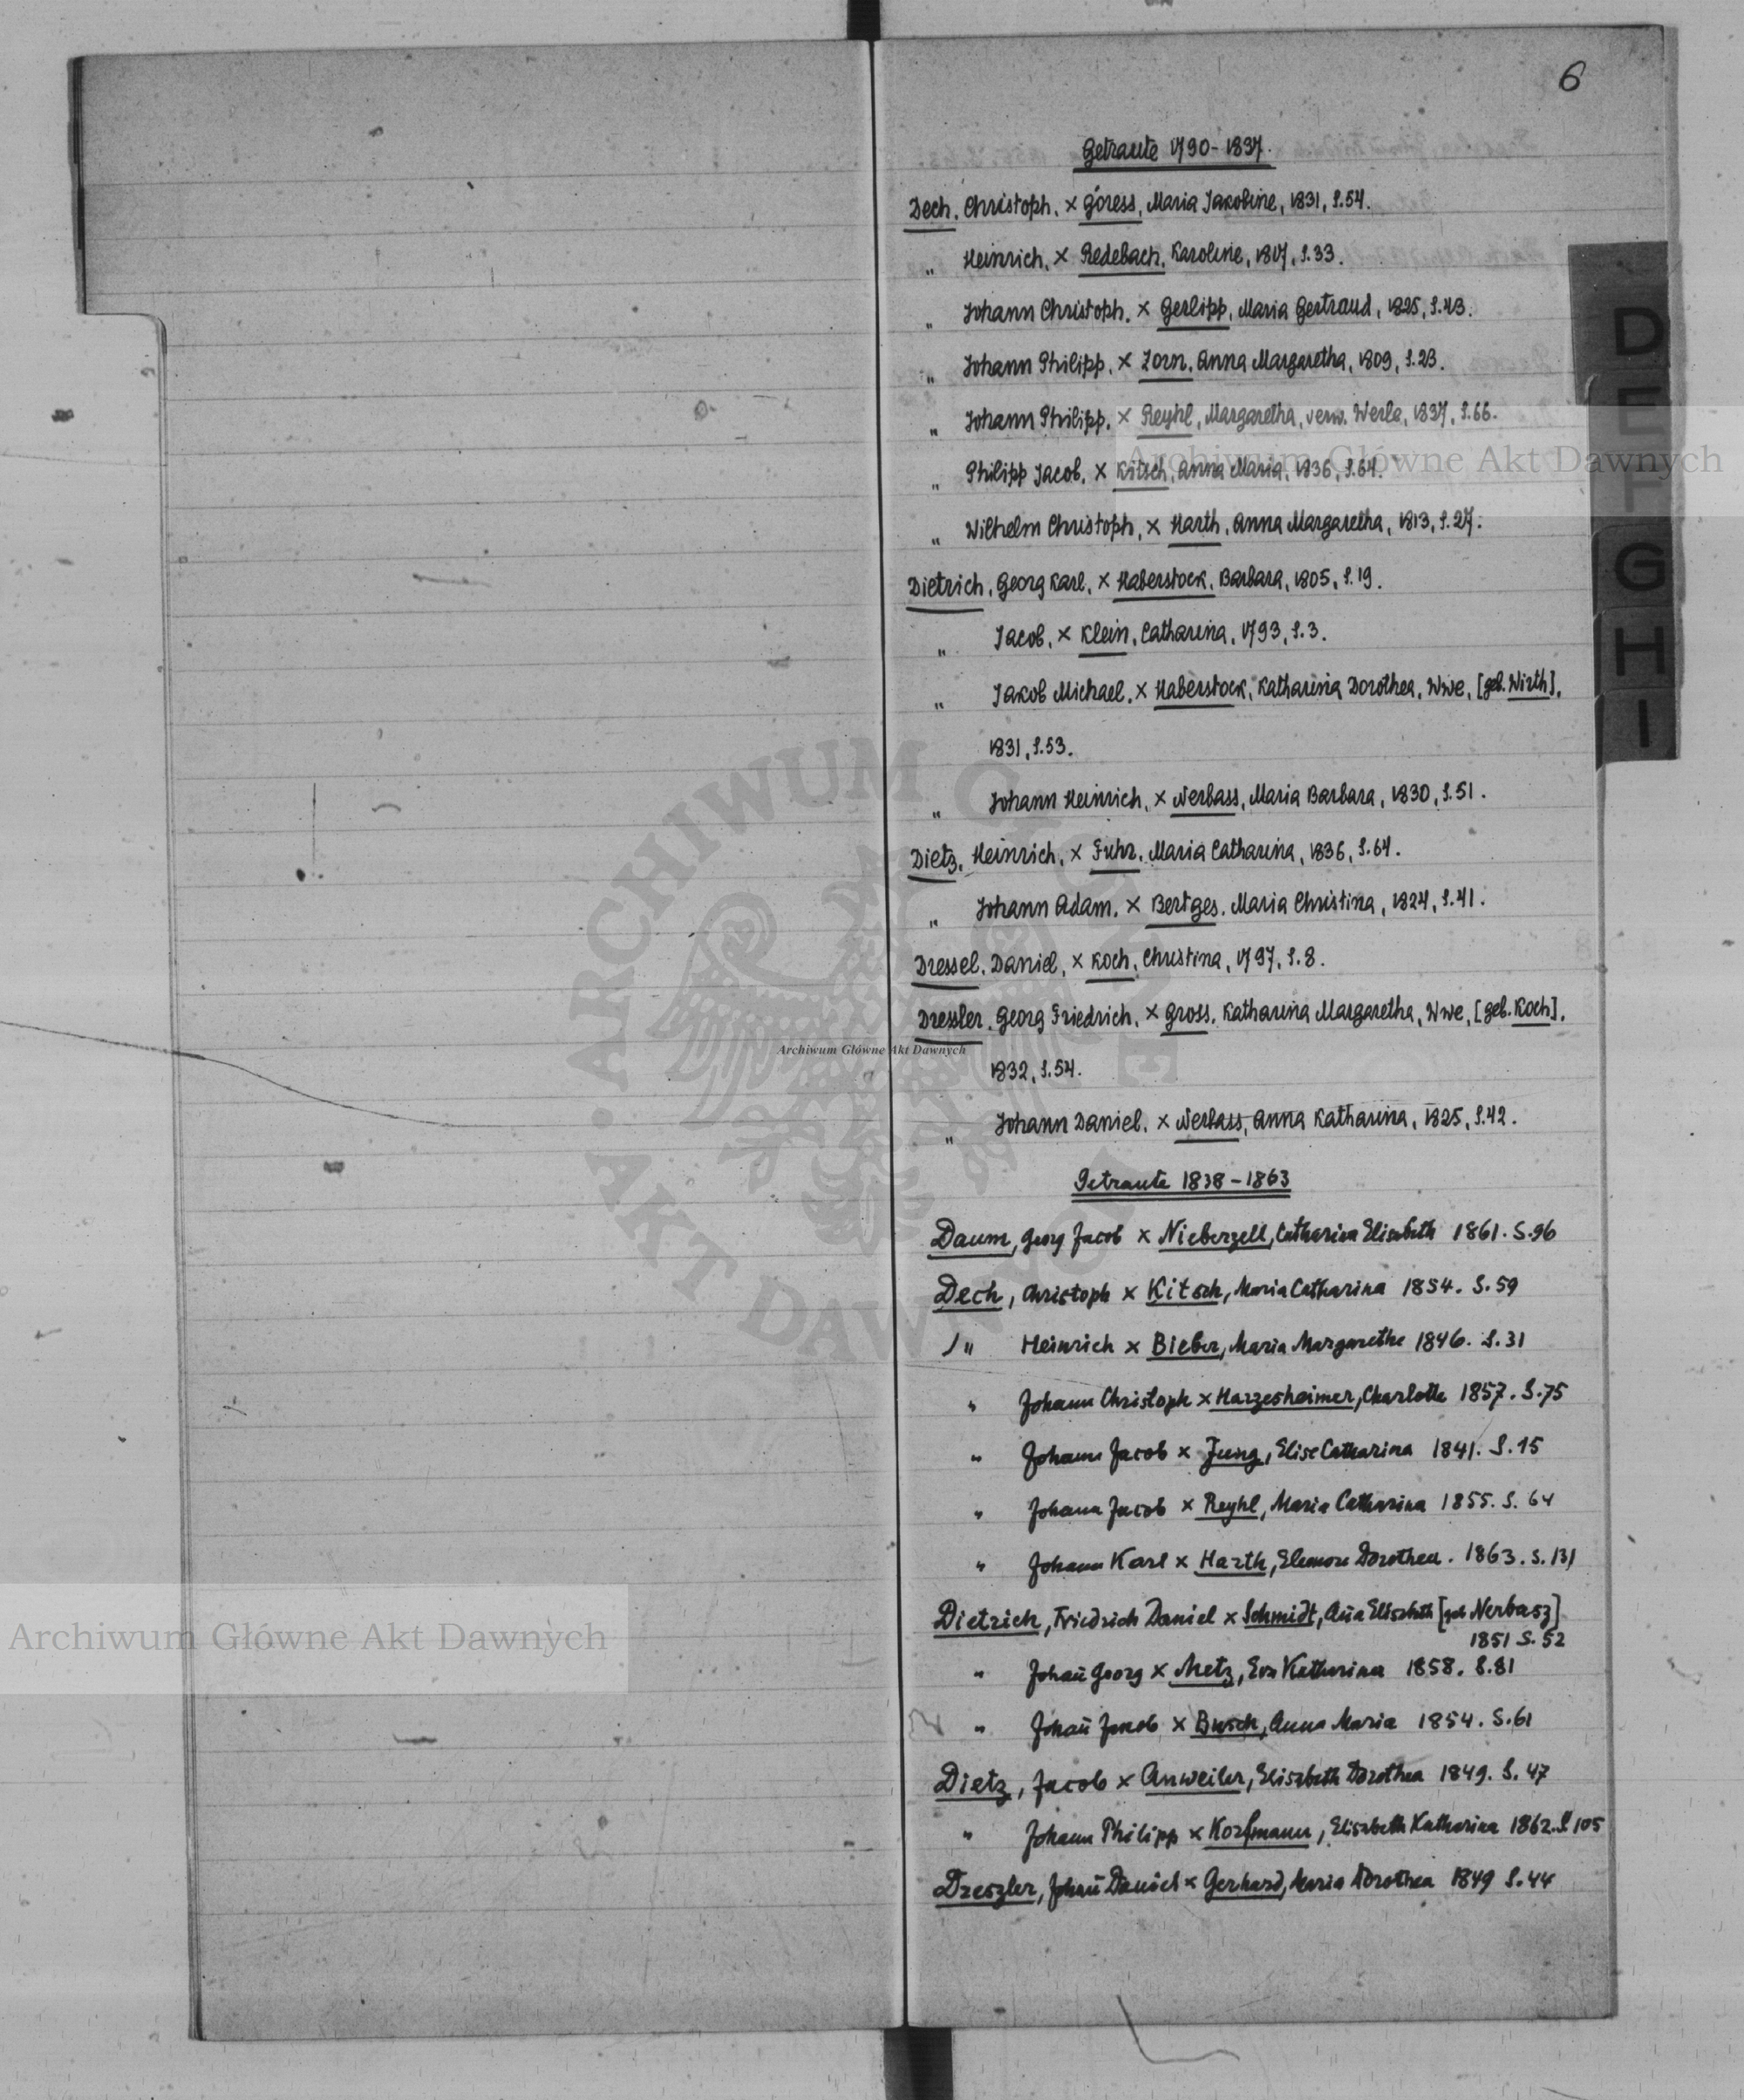 6
Getraute 1790-1837.
Dech, Christoph, × Göress, Maria Jakobine, 1831, S.54.
„ Heinrich, × Redebach, Karoline, 1817, S.33.
„ Johann Christoph, × Gerlipp, Maria Gertraud, 1825, S.43.
„ Johann Philipp, × Zorn, Anna Margaretha, 1809, S.23.
„ Johann Philipp, × Reyhl, Margaretha, verw. Werle, 1837, S.66.
„ Philipp Jacob, × Kitsch, Anna Maria, 1836, S.64.
„ Wilhelm Christoph, × Harth, Anna Margaretha, 1813, S.27.
Dietrich, Georg Karl, × Haberstock, Barbara, 1805, S.19.
„ Jacob, × Klein, Catharina, 1793, S.3.
„ Jakob Michael, × Haberstock, Katharina Dorothea, Wwe, [geb. Wirth],
1831, S.53.
„ Johann Heinrich, × Nerbass, Maria Barbara, 1830, S.51.
Dietz, Heinrich, × Fuhr, Maria Catharina, 1836, S.64.
„ Johann Adam, × Bertges, Maria Christina, 1824, S.41.
Dressel, Daniel, × Koch, Christina, 1797, S.8.
Dressler, Georg Friedrich, × Gross, Katharina Margaretha, Wwe, [geb. Koch],
1832, S.54.
„ Johann Daniel, × Nerbass, Anna Katharina, 1825, S.42.
Getraute 1838-1863
Daum, Georg Jacob × Niebergell, Catharina Elisabeth 1861. S.96
Dech, Christoph × Kitsch, Maria Catharina 1854. S.59
„ Heinrich × Bieber, Maria Margarethe 1846. S.31
„ Johann Christoph × Harzesheimer, Charlotte 1857. S.75
„ Johann Jacob × Jung, Elise Catharina 1841. S.15
„ Johann Jacob × Reyhl, Maria Catharina 1855. S.64
„ Johann Karl × Harth, Eleonore Dorothea. 1863. S.131
Dietrich, Friedrich Daniel × Schmidt, Aña Elisabeth [geb Nerbasz]
1851 S.52
„ Johañ Georg × Metz, Eva Katharina 1858. S.81
„ Johañ Jakob × Busch, Anna Maria 1854. S.61
Dietz, Jacob × Anweiler, Elisabeth Dorothea 1849. S.47
„ Johann Philipp × Korfmann, Elisabeth Katharina 1862. S 105
Dreszler, Johañ Daniel × Gerhard, Maria Dorothea 1849 S.44
D
E
F
G
H
I
Archiwum Główne Akt Dawnych
Archiwum Główne Akt Dawnych
Archiwum Główne Akt Dawnych
ARCHIWUM GŁÓWNE
· AKT DAWNYCH